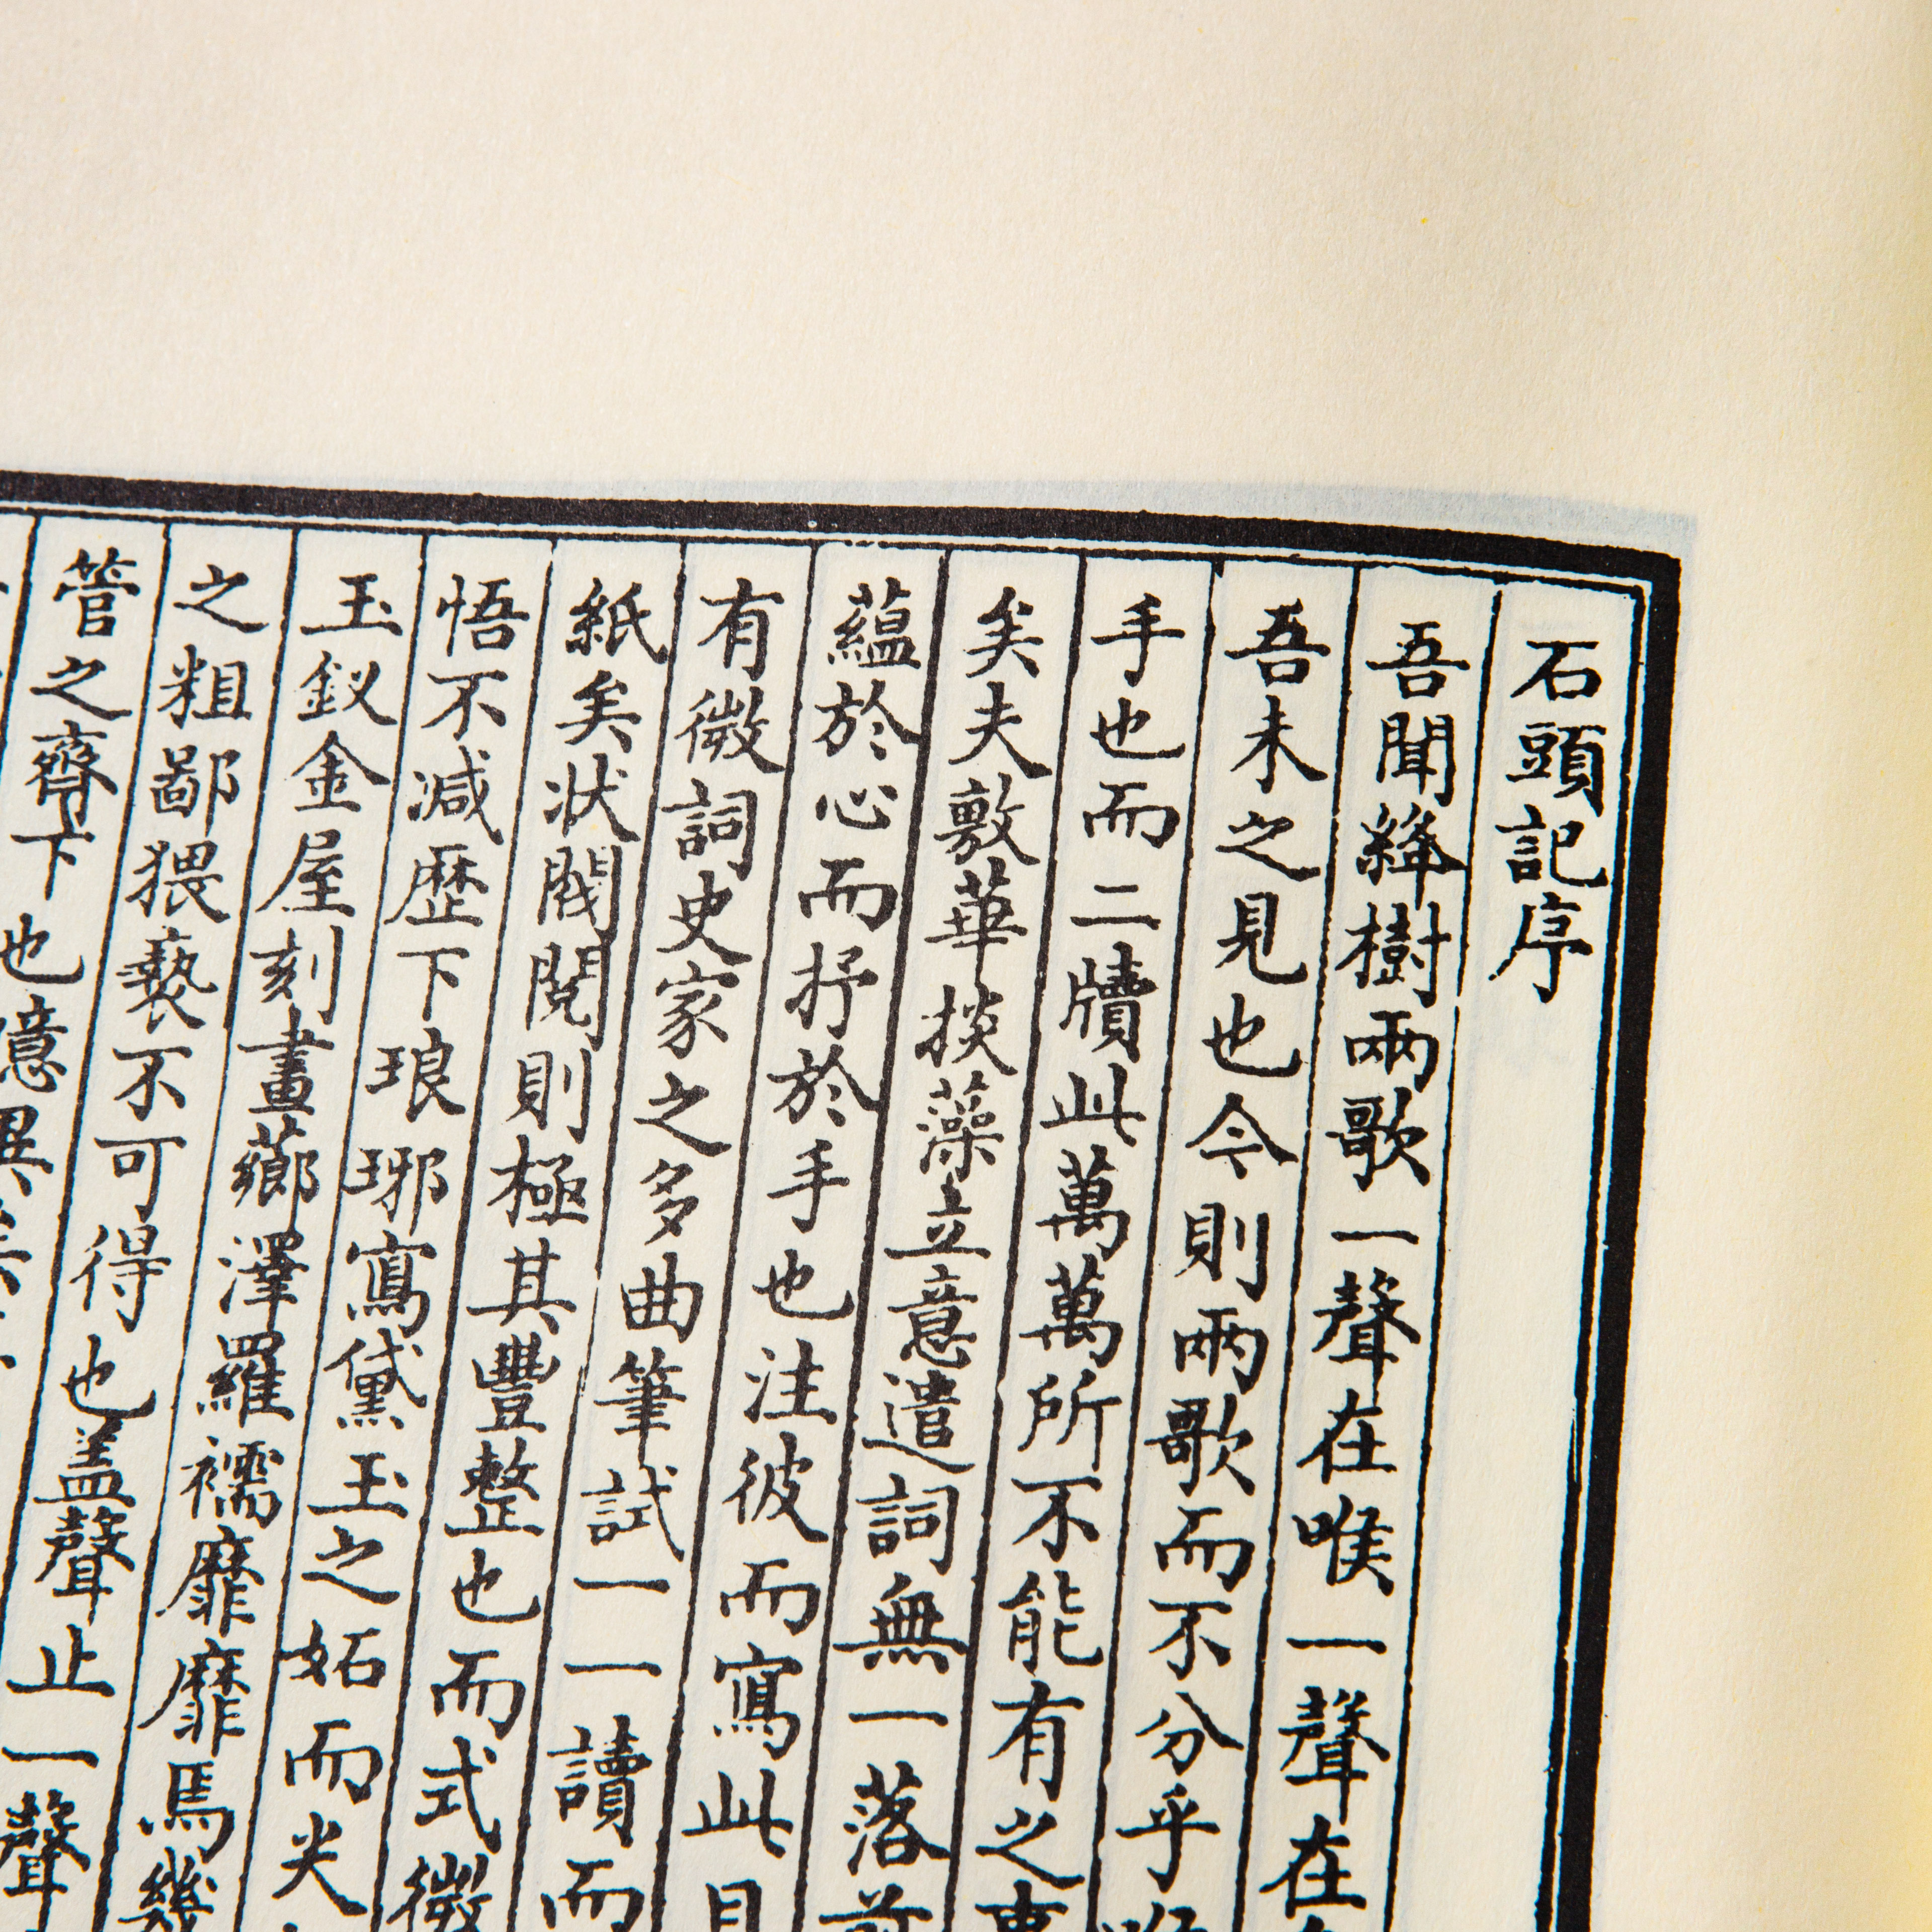 石頭記序
吾聞絳樹兩歌一聲在喉一聲在
吾未之見也今則兩歌而不分乎
手也而二牘此萬萬所不能有之事
矣夫敷華掞藻立意遣詞無一落前
蘊於心而抒於手也注彼而寫此目
有微詞史家之多曲筆試一一讀而
紙矣狀閥閱則極其豐整也而式微
悟不减歷下琅琊寫黛玉之妬而尖
玉釵金屋刻畫薌澤羅襦靡靡焉幾
之粗鄙猥褻不可得也盖聲止一聲
管之齊下也
億異